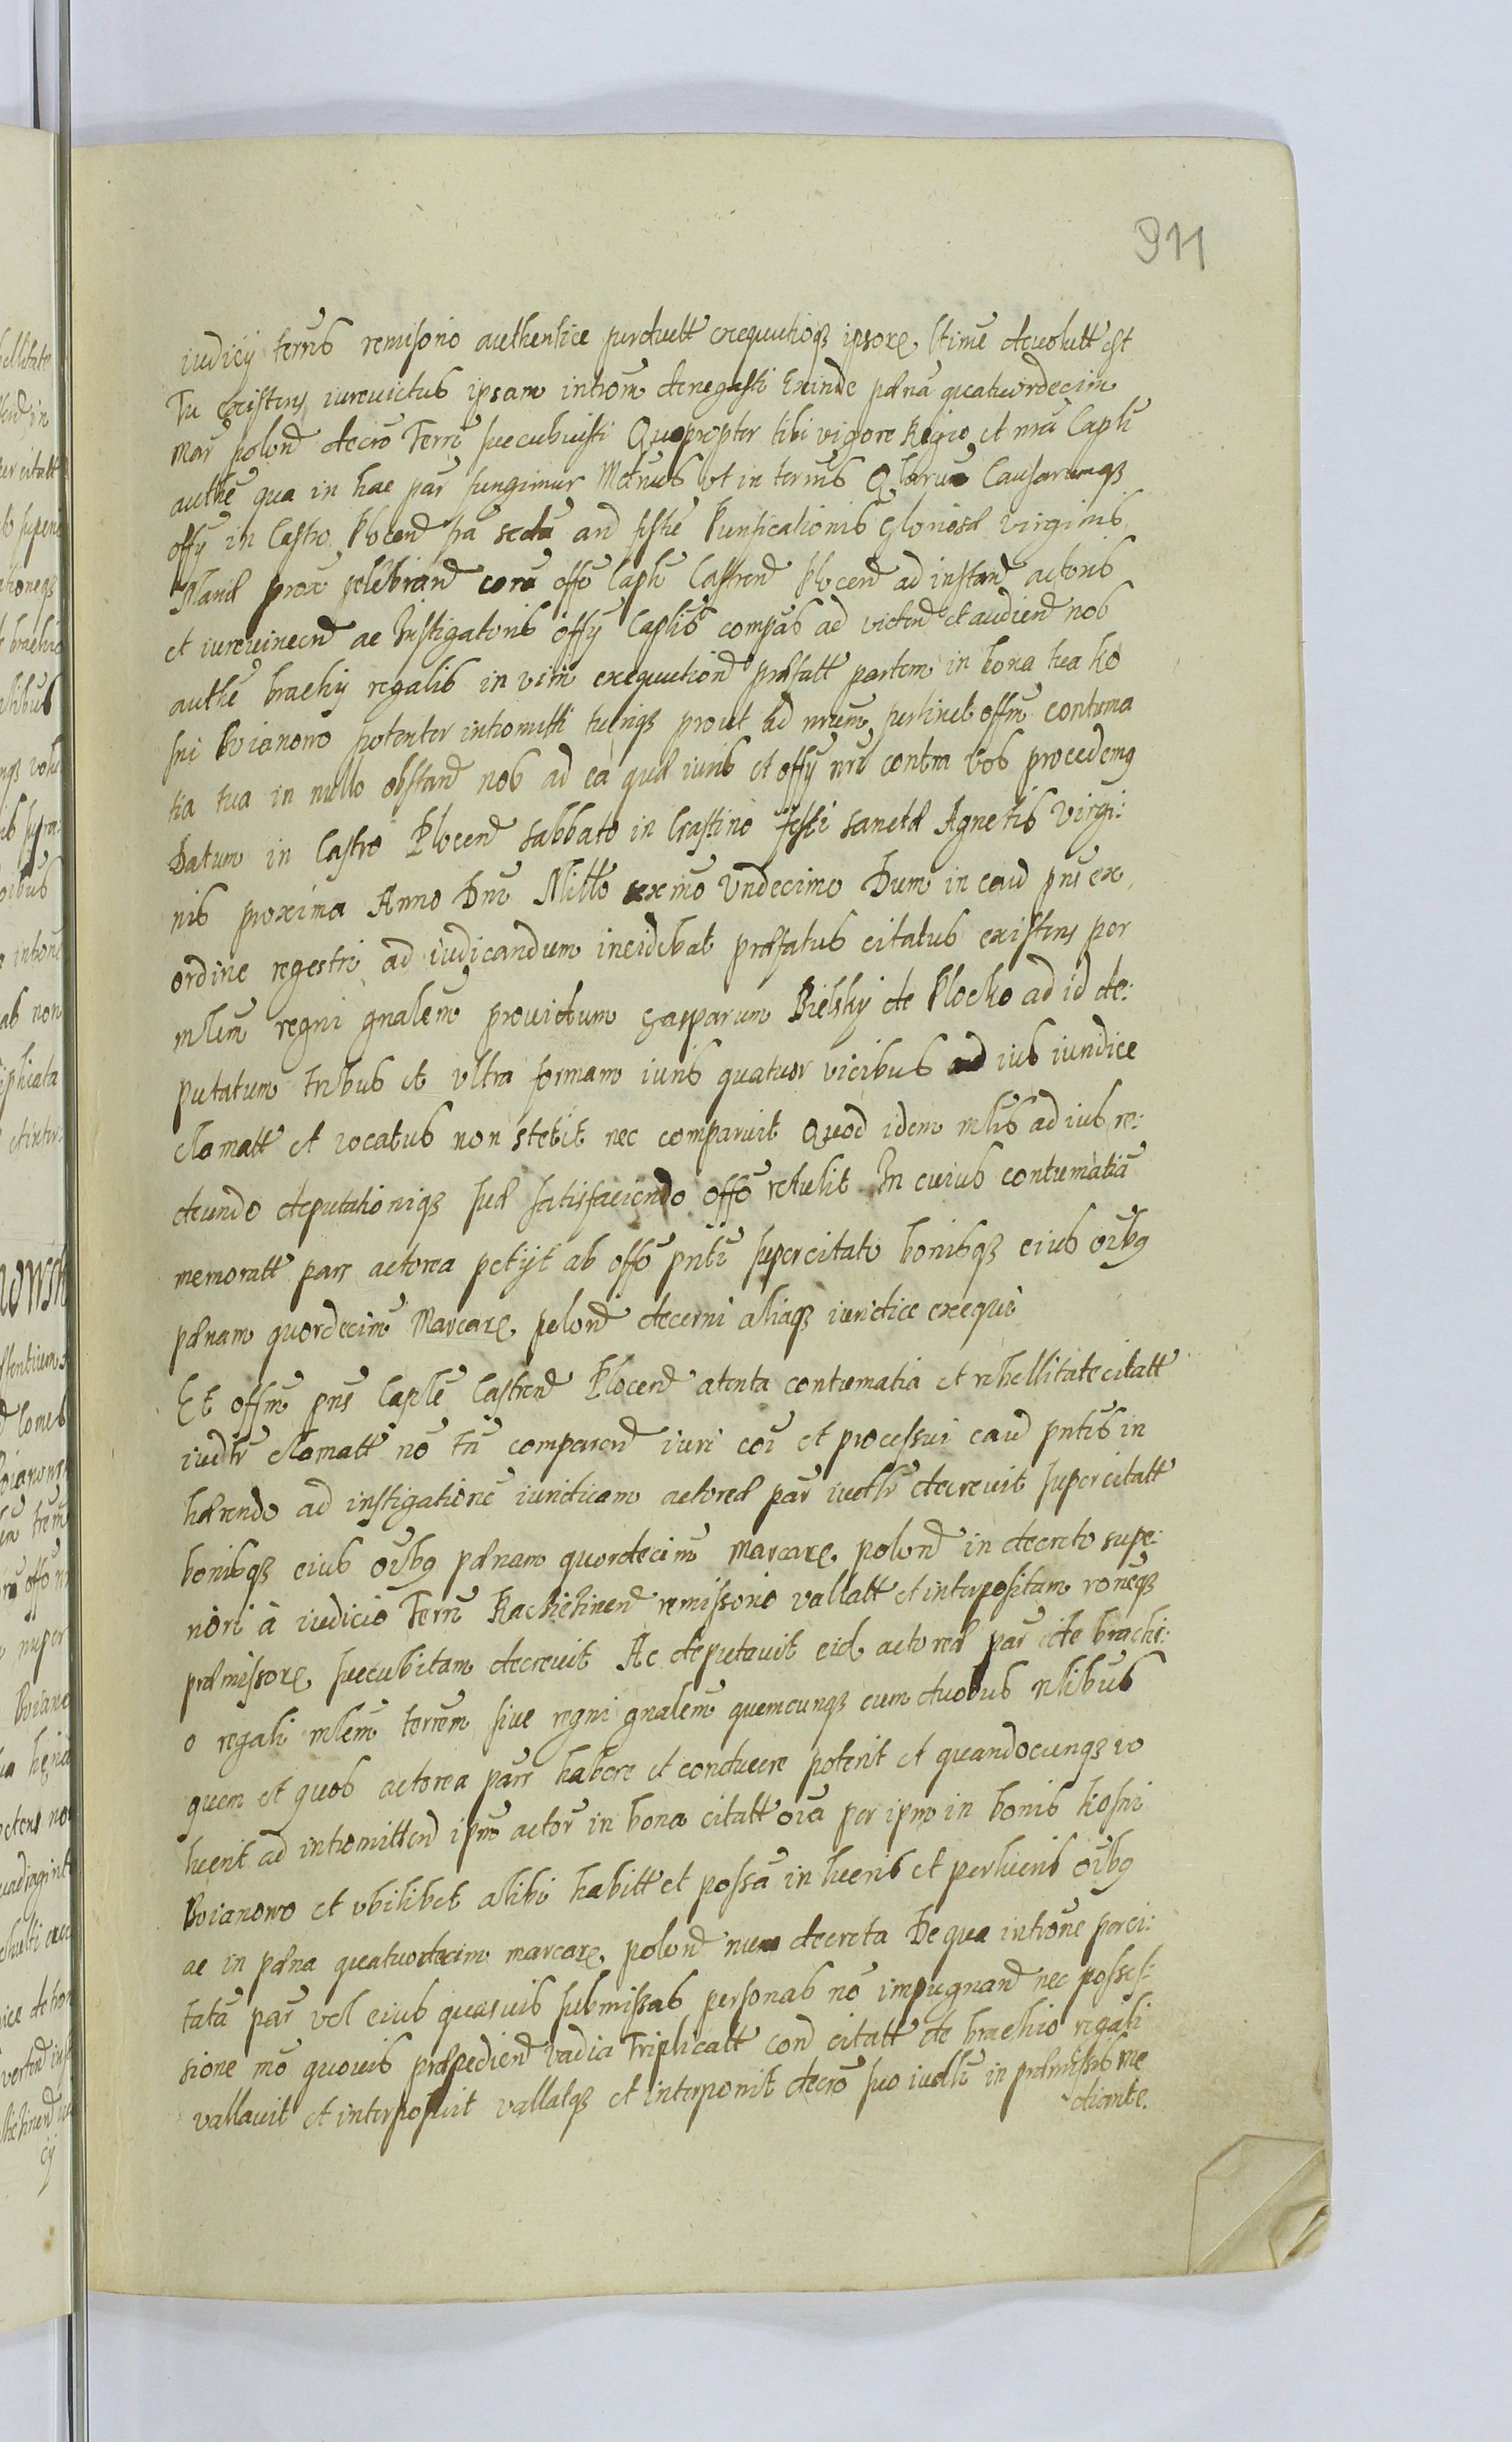 911
iudicÿ terris remisorio authentice perductt exequutioqз ipsorę. ltime devolutt est
Tu existens iurevictus ipsam introm denegasti Exinde pænã quatuordecim
Mar polond decro Terri succubuisti Quapropter tibi vigore Regio et nra Capli
authe qua in hac par fungimur Mãnus vt in termis Qlarum Causarumqз
offÿ in Castro Plocend fra secda and festũ Purificationis Gloriosæ virginis
Mariæ prox celebrand corã offo Capli Castrend Plocend ad instand actoris
et iurevincend ac Instigatoris offÿ Caplis compas ad vidend et audiend nos
authe brachÿ regalis in vim exequutiond præfatt partem in bona tua Ko
sni Boianowo potenter intromitti tuenqз prout ad nrum pertinet offm contuma
tia tua in nullo obstand nos ad ea quæ iuris et offÿ nri contra vos procedemg
Datum in Castro Plocend sabbato in Crastino festi sanctæ Agnetis Virgi:
nis proxima Anno Dni Millo sexmo Vndecimo Dum in caud pns ex
ordine regestri ad iudicandum incidebat præfatus citatus existens per
mlem regni gnalem prouidum Gasparum Bielsky de Plocko ad id de:
putatum tribus et vltra formam iuris quatuor vicibus ad ius iuridice
clamatt et vocatus non stetit nec comparuit Quod idem mlis ad ius re:
deundo deputationiqз suæ satisfaciendo offo retulit In cuius contumatiã
memoratt pars actorea petÿt ab offo pnti supercitato bonisqз eius oibg
pænam quordecim Marcarę. polond decerni aliaqз iuridice exequi
Et offm pns Caple Castrend Plocend atenta contumatia et rebellitate citatt
iudtr clamatt nõ tñ comparend iuri coi et processui caud pntis in
hærendo ad instigationẽ iuridicam actoreæ par iudlr decreuit supercitatt
bonisqз eius oibg pænam quordecim Marcarę. polond in decreto supe:
riori à iudicio Terri Raciązinend remissorio vallatt et interpositam roneqз
præmissorę succubitam decreuit Ac deputauit eid actoreæ par de brachi:
o regali mlem terrem siue regni gnalem quemcunqз cum duobus nlibus
quem et quos actorea pars habere et conducere poterit et quandocunqз vo
luerit ad intromittend ipm actor in bona citatt oia per ipm in bonis Kosni
Boianowo et vbilibet alibi habitt et possa in lucris et perlucris oibg
ac in pæna quatuordecim marcarę. polond nunc decreta De qua introne per ci:
tatã par vel eius quasuis submissas personas nõ impugnand nec posses:
sione mõ quouis præpediend vadia triplicatt cond citatt de brachio regali
vallauit et interposuit vallatqз et interponit decro suo iudlr in præmissis me
diante.